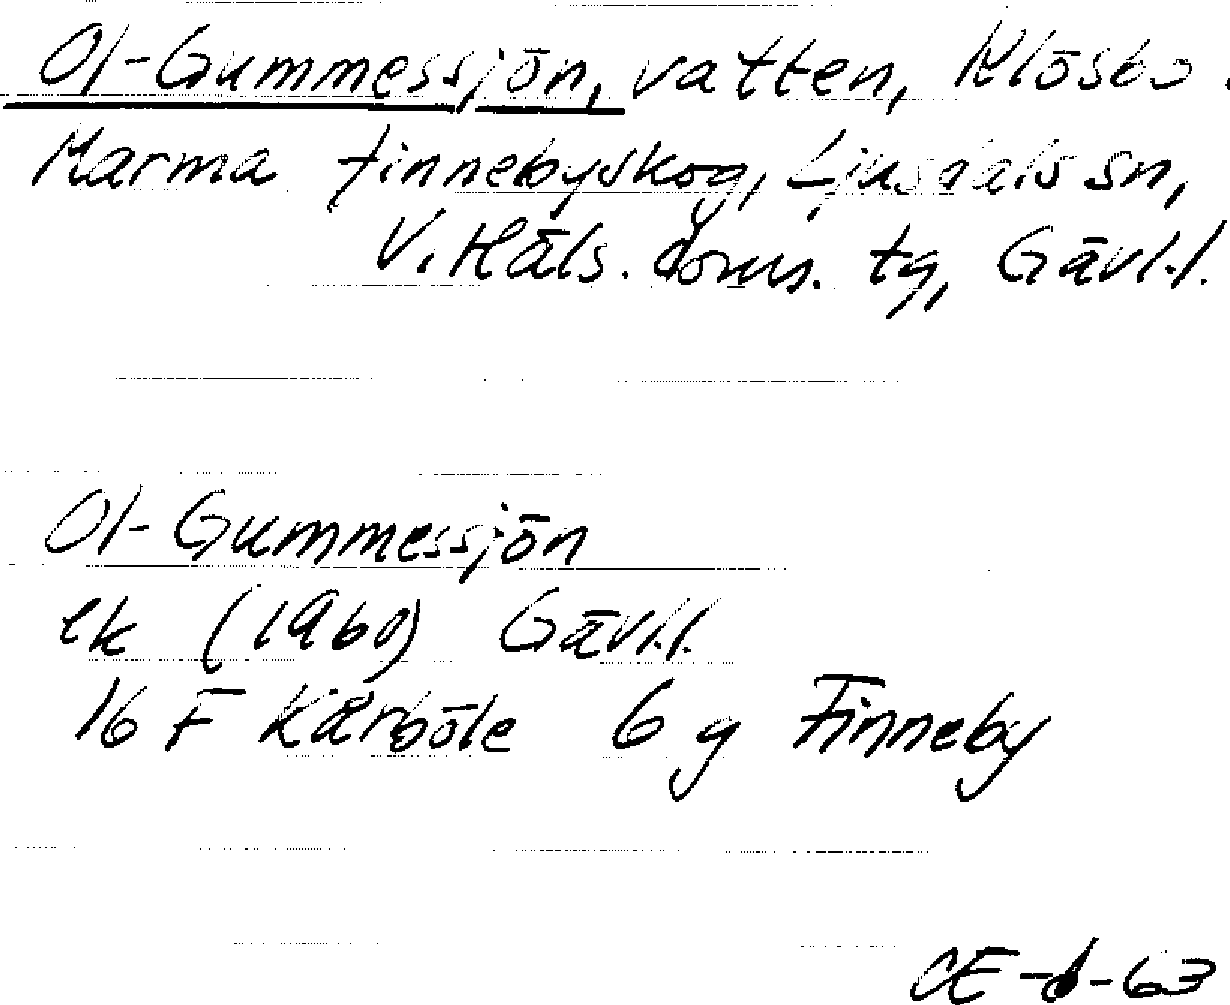 Ol-Gummessjön, vatten, Klösbo
Marma finnebyskog, Ljusdals sn,
V. Häls. doms. tg, Gävl.l.
Ol-Gummessjön
ek (1960) Gävl.l.
16 F Kårböle 6 g Finneby
CE-6-63